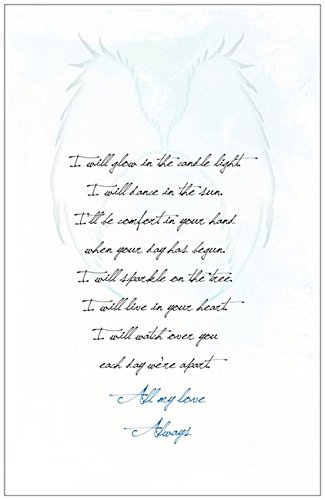 I will glow in the candle light
I will dance in the sun.
I'll be comfort in your hand
when your day has begun.
I will sparkle on the tree.
I will live in your heart
I will watch over you
each day we're apart
All my love
Always